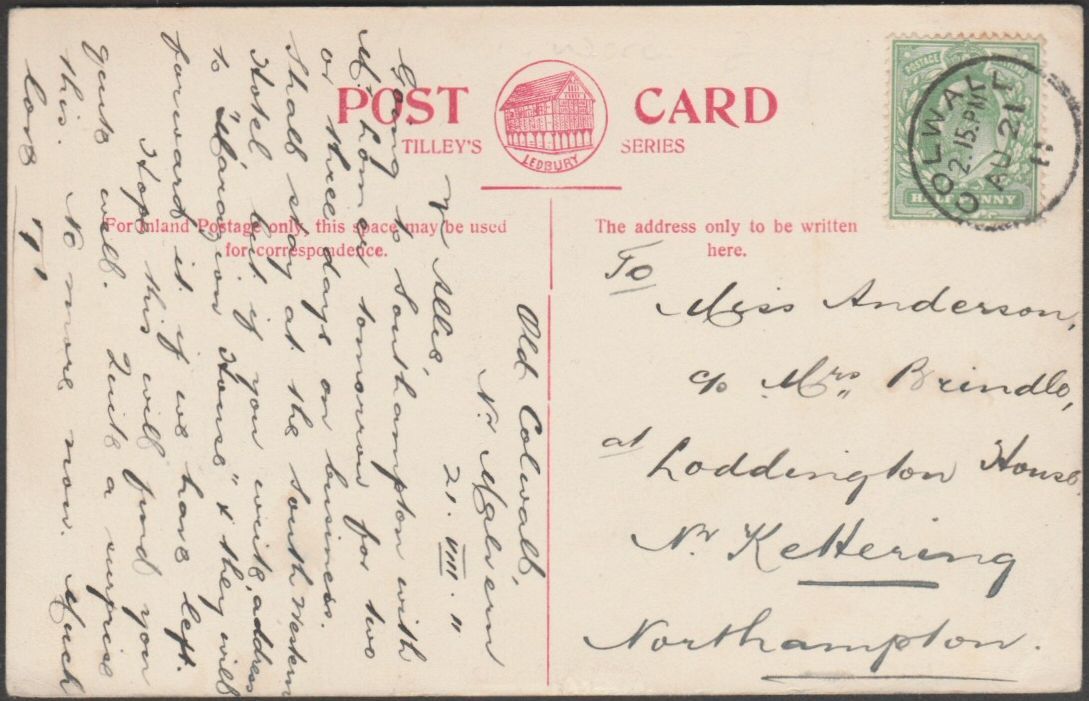 POST CARD
TILLEY'S SERIES
LEDBURY
For Inland Postage only, this space may be used
for correspondence.
The address only to be written
here.
POSTAGE
HALF PENNY
COLWALL
2.15.PM
AU 21
11
Old Colwall,
Nr Malvern
21.VIII.11
Going to Southampton with
Mr Lomas tomorrow for two
or three days on business.
Shall stay at the South Western
Hotel but if you write, address
to "Marazion House" & they will
forward it if we have left.
Hope this will find you
quite well. Quite a surprise
this. No more now. Much
love
To
Miss Anderson,
c/o Mrs Brindle,
at Loddington House
Nr Kettering
Northampton.